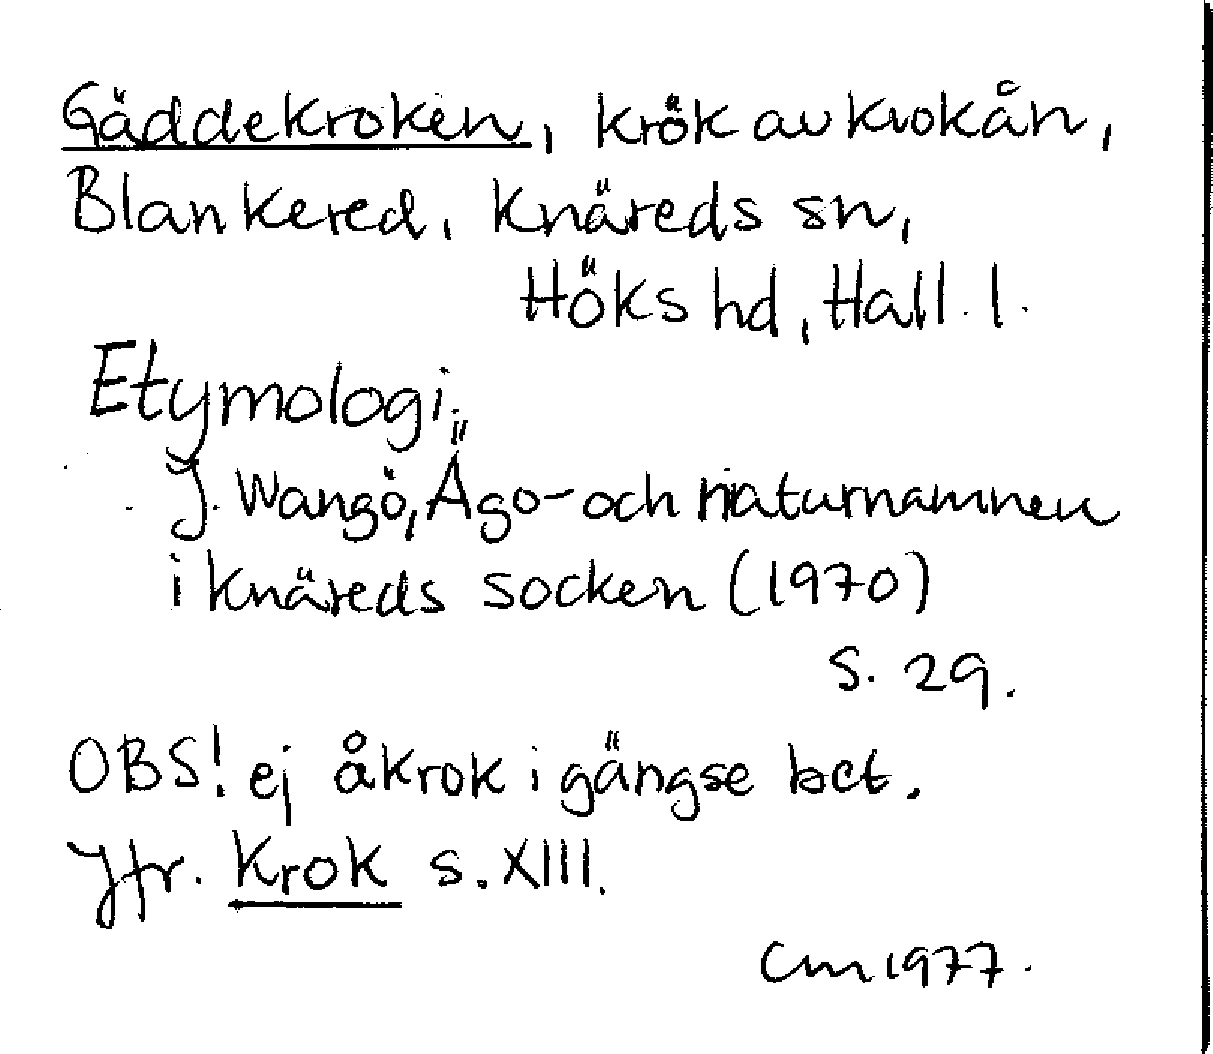 Gäddekroken, krök av Krokån,
Blankered, Knäreds sn,
Höks hd, Hall. l.
Etymologi:
J. Wangö, Ägo- och naturnamnen
i Knäreds socken (1970)
s. 29.
OBS! ej åkrok i gängse bet.
Jfr. Krok s. XIII.
CM 1977.